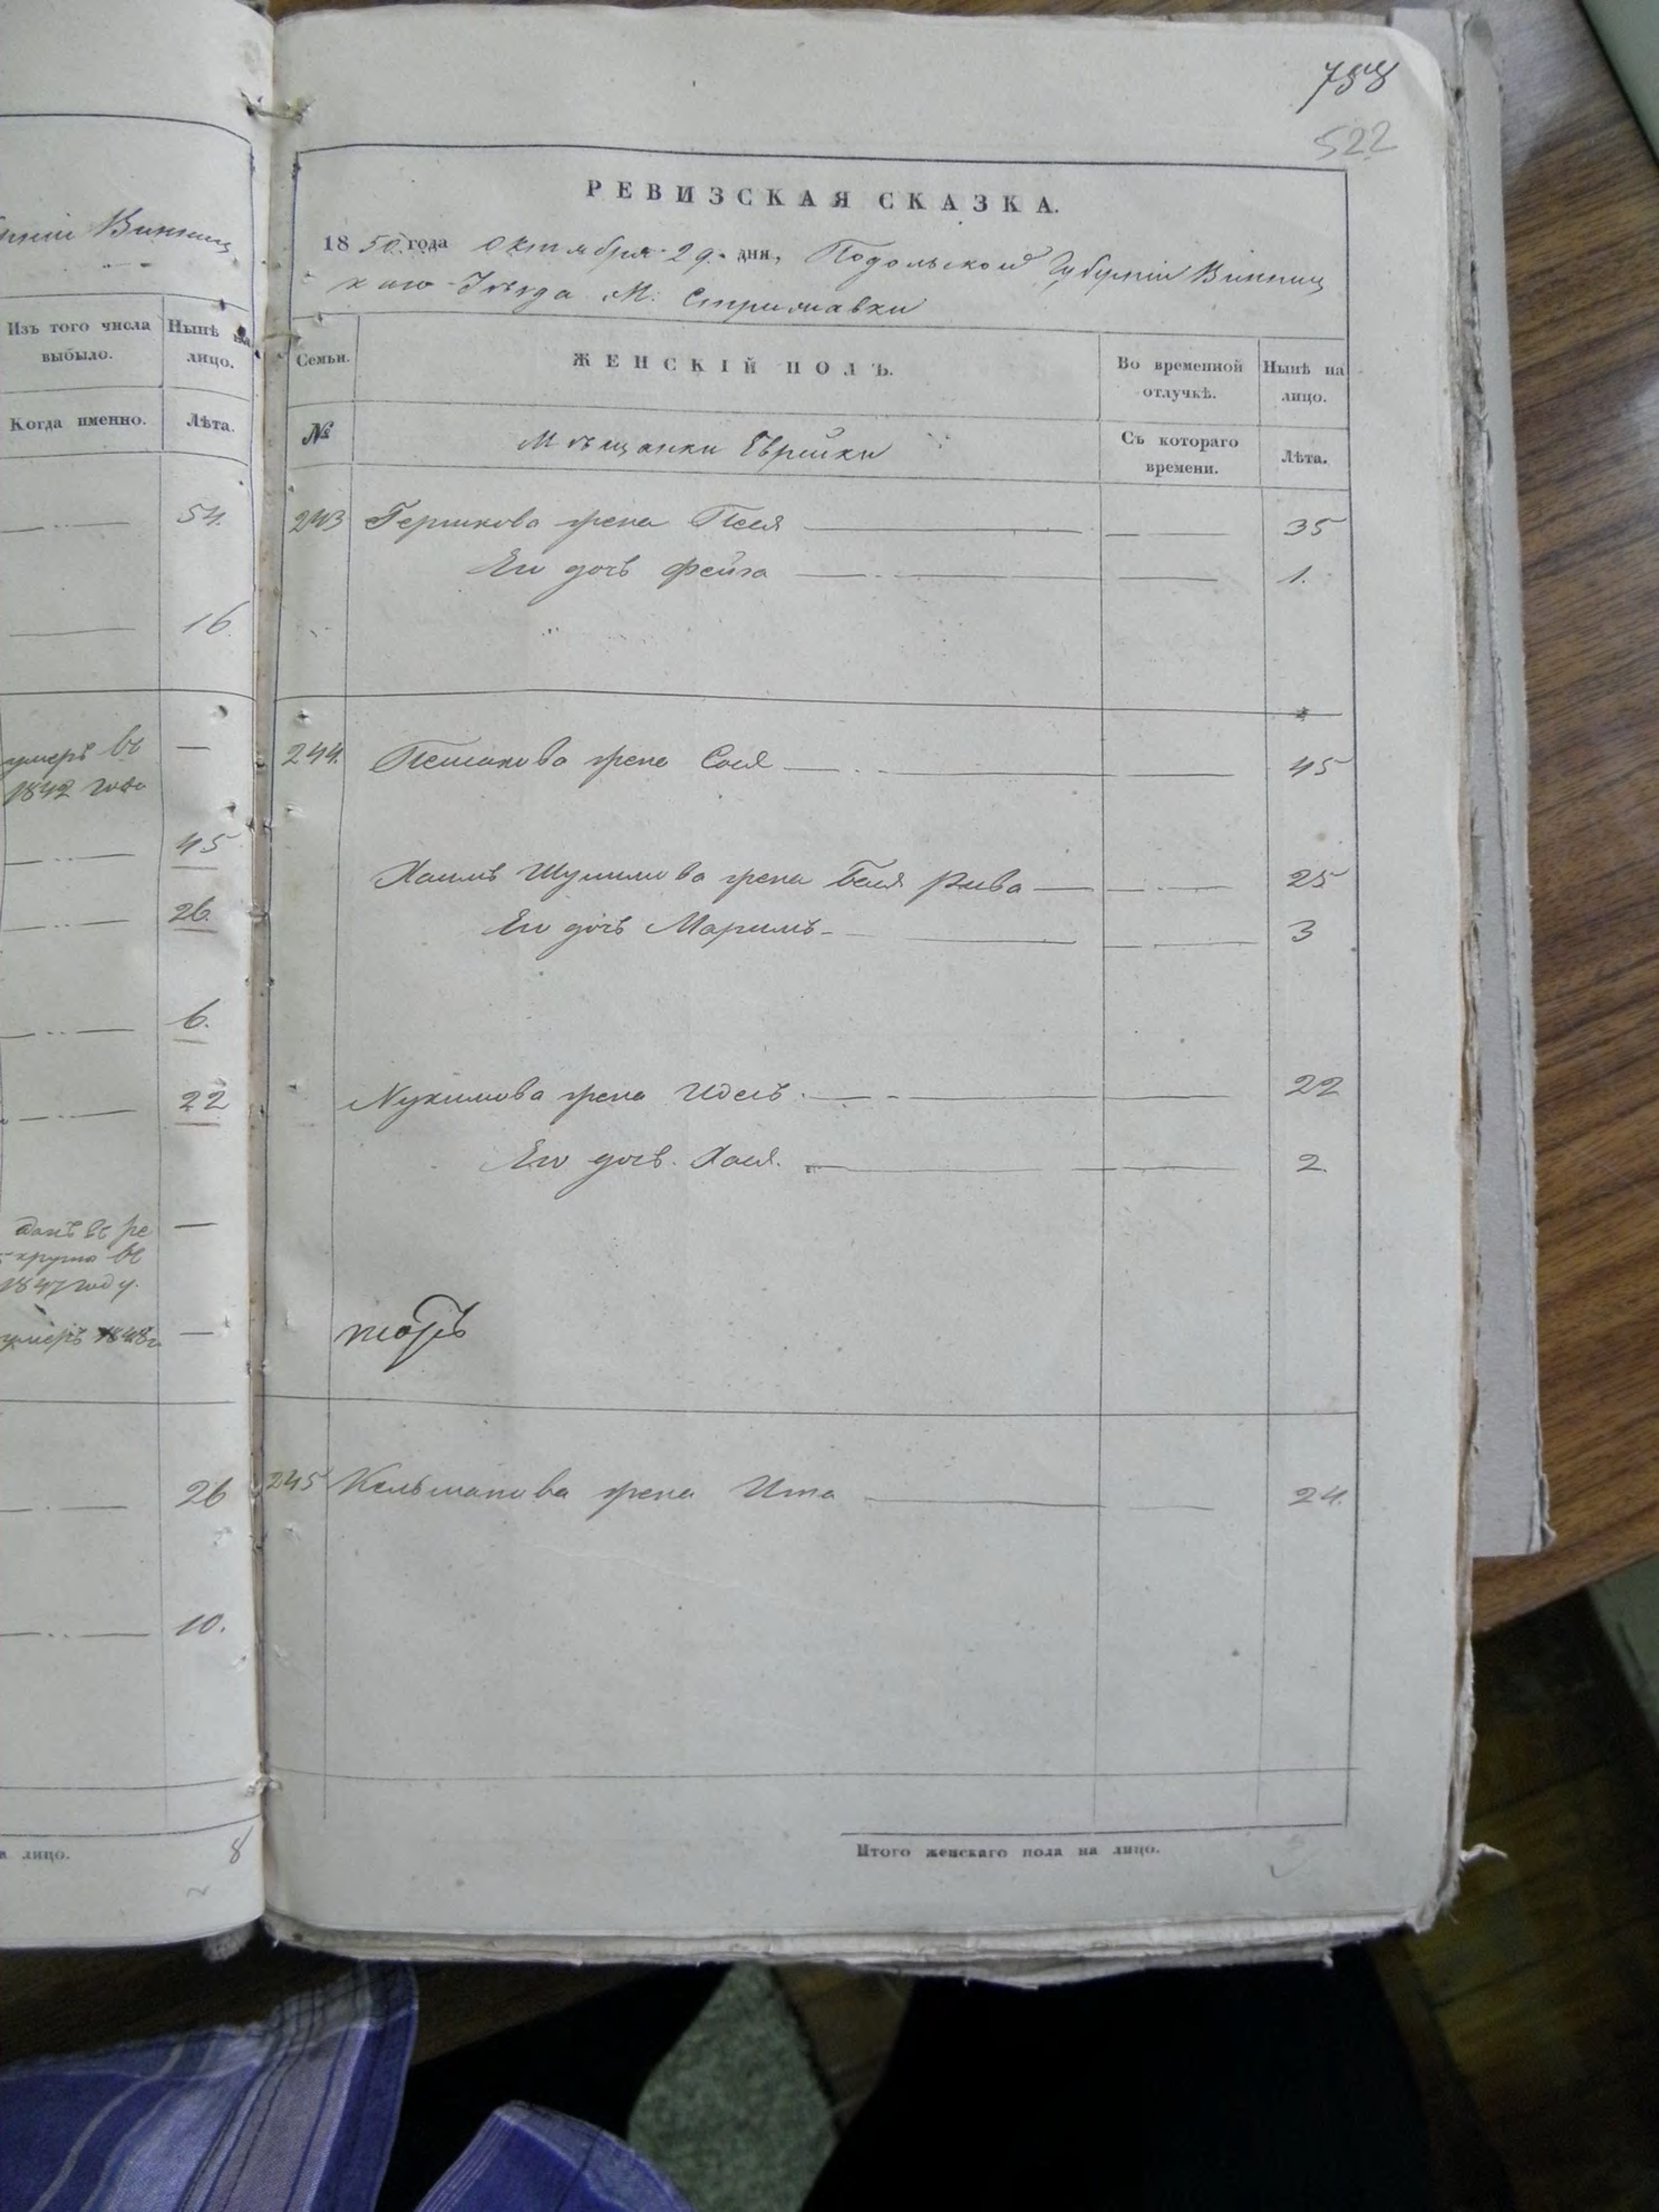 ниi Винниц
Изъ того числа выбыло.
Нынѣ на лицо.
Когда именно.
Лѣта.
54.
16
умеръ въ —
1842 года
45
26.
6.
22
данъ въ ре —
крута въ
1847 году.
умеръ 1848 г —
26
10.
лицо. 8
522
РЕВИЗСКАЯ СКАЗКА.
1850 года Октября 29 дня, Подольской Губернiи Винниц
каго Уѣзда М: Стрижавки
Семьи.
ЖЕНСКIЙ ПОЛЪ.
Во временной отлучкѣ.
Нынѣ на лицо.
№
Мѣщанки Еврейки
Съ котораго времени.
Лѣта.
243 Гершкова жена Песя 35
Его дочь Фейга 1.
244. жена Сося 45
Хаимъ Шулимова жена Бася Рива 25
Его дочь Маримъ 3
Нухимова жена Идесъ 22
Его дочь Хася. 2.
245 Кельманова жена Ита 24.
Итого женскаго пола на лицо.